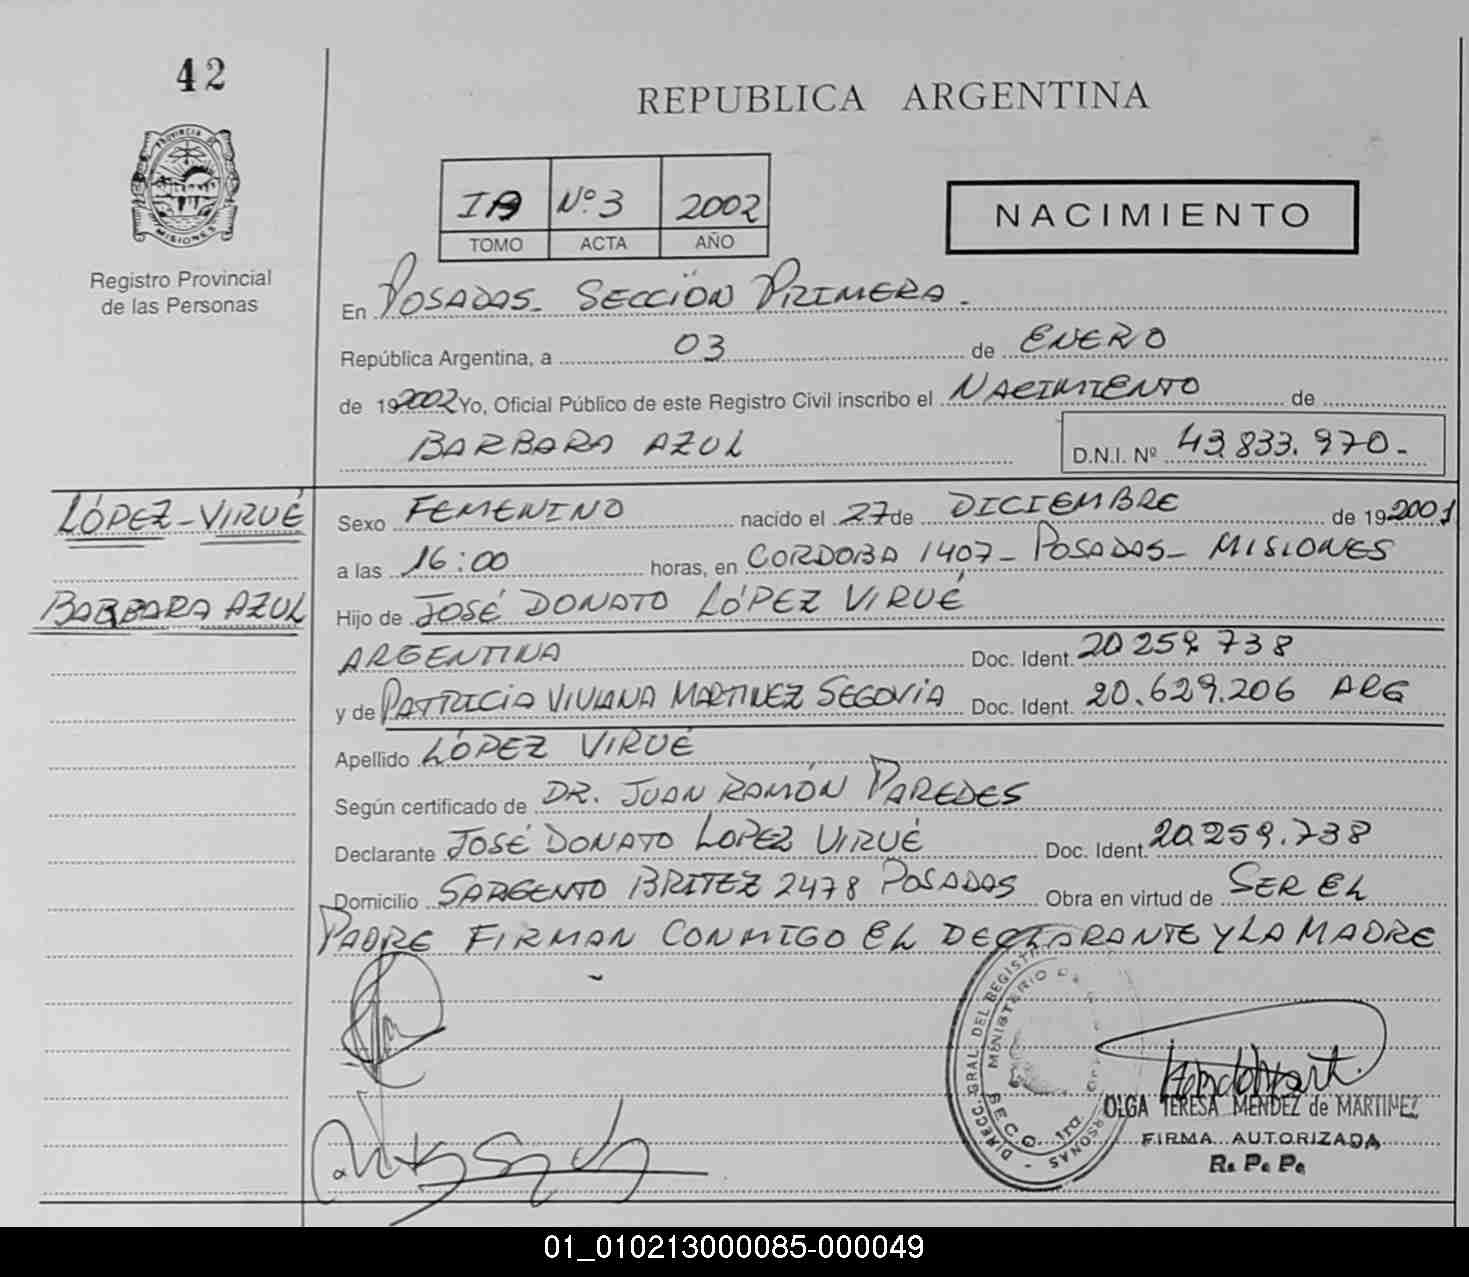 42
REPUBLICA ARGENTINA
PROVINCIA DE
MISIONES
Registro Provincial
de las Personas
Nº 3 2002
TOMO ACTA AÑO
NACIMIENTO
En POSADAS - SECCIÓN PRIMERA.
República Argentina, a 03 de ENERO
de 192002 Yo, Oficial Público de este Registro Civil inscribo el NACIMIENTO de
BARBARA AZUL D.N.I. Nº 43.833.970.-
LÓPEZ-VIRUÉ
BARBARA AZUL
Sexo FEMENINO nacido el 27 de DICIEMBRE de 192001
a las 16:00 horas, en CORDOBA 1407- POSADAS- MISIONES
Hijo de JOSÉ DONATO LÓPEZ VIRUÉ
ARGENTINA Doc. Ident. 20 259 738
y de PATRICIA VIVIANA MARTINEZ SEGOVIA Doc. Ident. 20.629.206 ARG
Apellido LÓPEZ VIRUÉ
Según certificado de DR. JUAN RAMÓN PAREDES
Declarante JOSÉ DONATO LOPEZ VIRUÉ Doc. Ident. 20.259.738
Domicilio SARGENTO BRITEZ 2478 POSADAS Obra en virtud de SER EL
PADRE FIRMAN CONMIGO EL DECLARANTE Y LA MADRE
DIRECC. GRAL. DEL REGIST
MINISTERIO DE
SECC. 1ra.
OLGA TERESA MENDEZ de MARTINEZ
FIRMA AUTORIZADA
R. P. P.
01_010213000085-000049